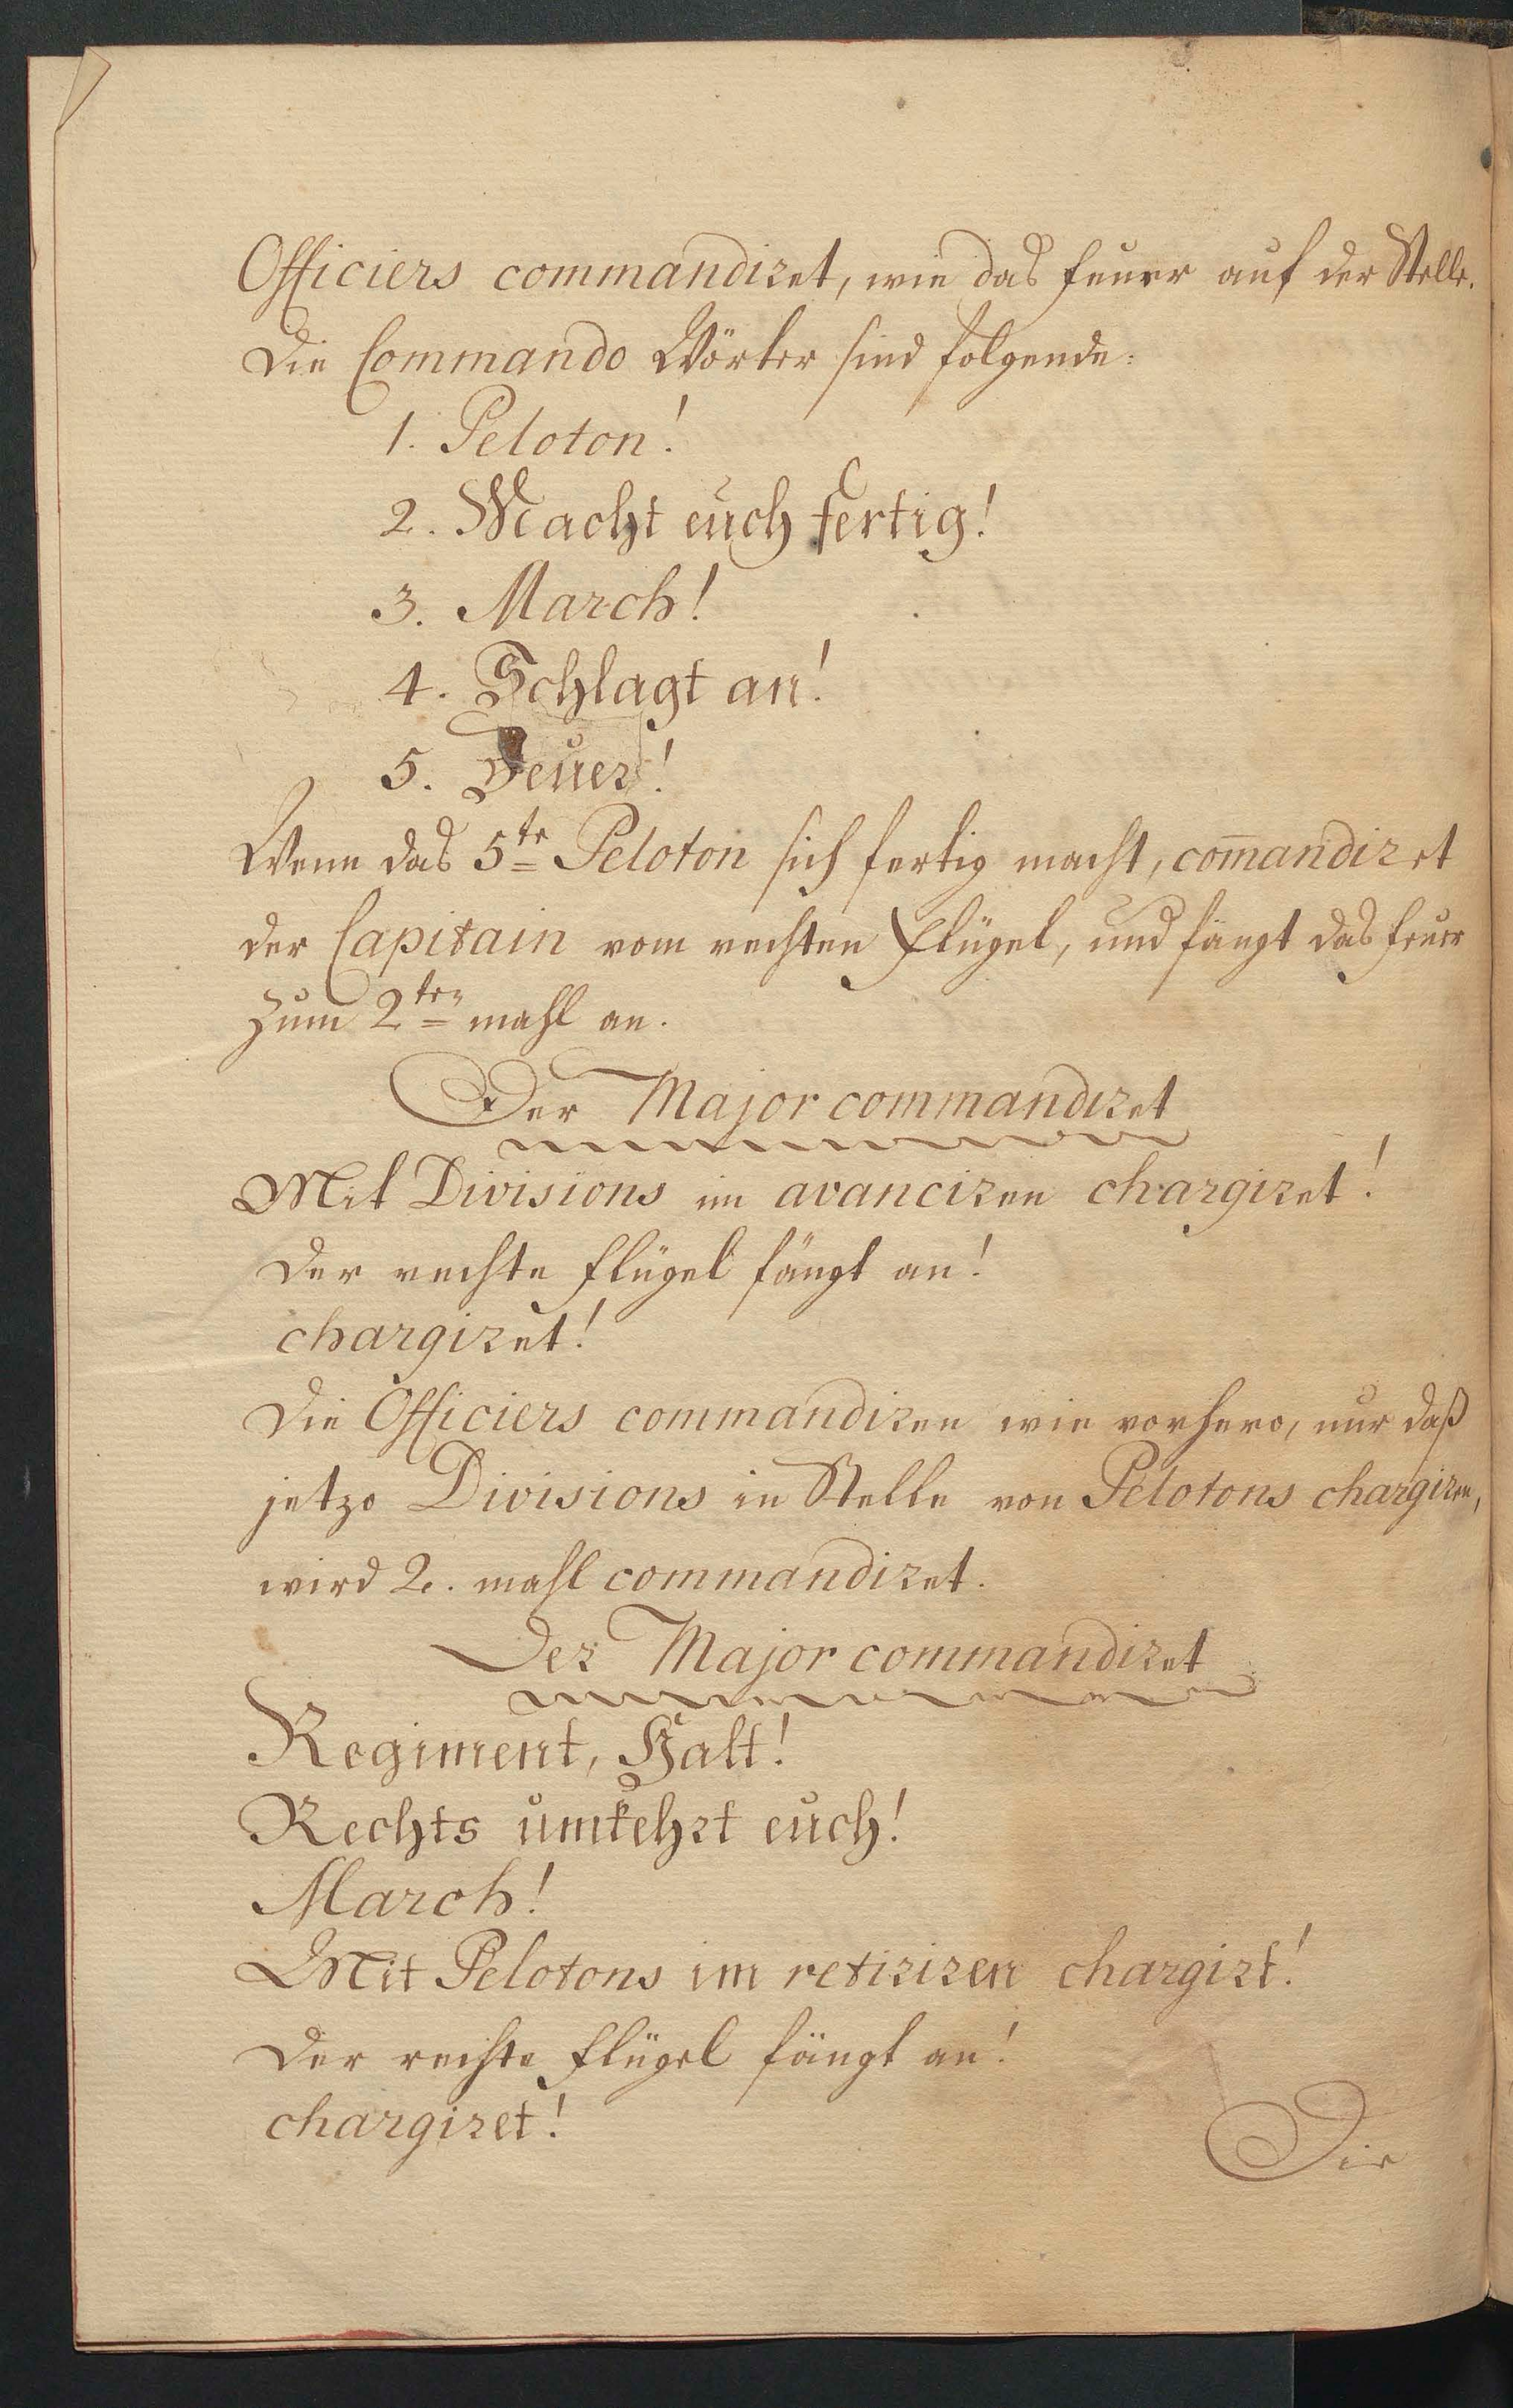 Officiers commandiret, wie das Feuer auf der Stelle.
Die Commando Wörter sind folgende:
1. Peloton!
2. Macht euch fertig!
3. March!
4. Schlagt an!
5. Feuer!
Wenn das 5te Peloton sich fertig macht, com̄andiret
der Capitain vom rechten Flügel, und fängt das Feuer
zum 2ten mahl an.
Der Major commandiret
Mit Divisions im avanciren chargiret!
Der rechte Flügel fängt an!
chargiret!
Die Officiers commandiren wie vorhero, nur daß
jetzo Divisions in Stelle von Pelotons chargiren,
wird 2. mahl commandiret.
Der Major commandiret
Regiment, Halt!
Rechts umkehrt euch!
March!
Mit Pelotons im retiriren chargirt!
Der rechte Flügel fängt an!
chargiret!
Die